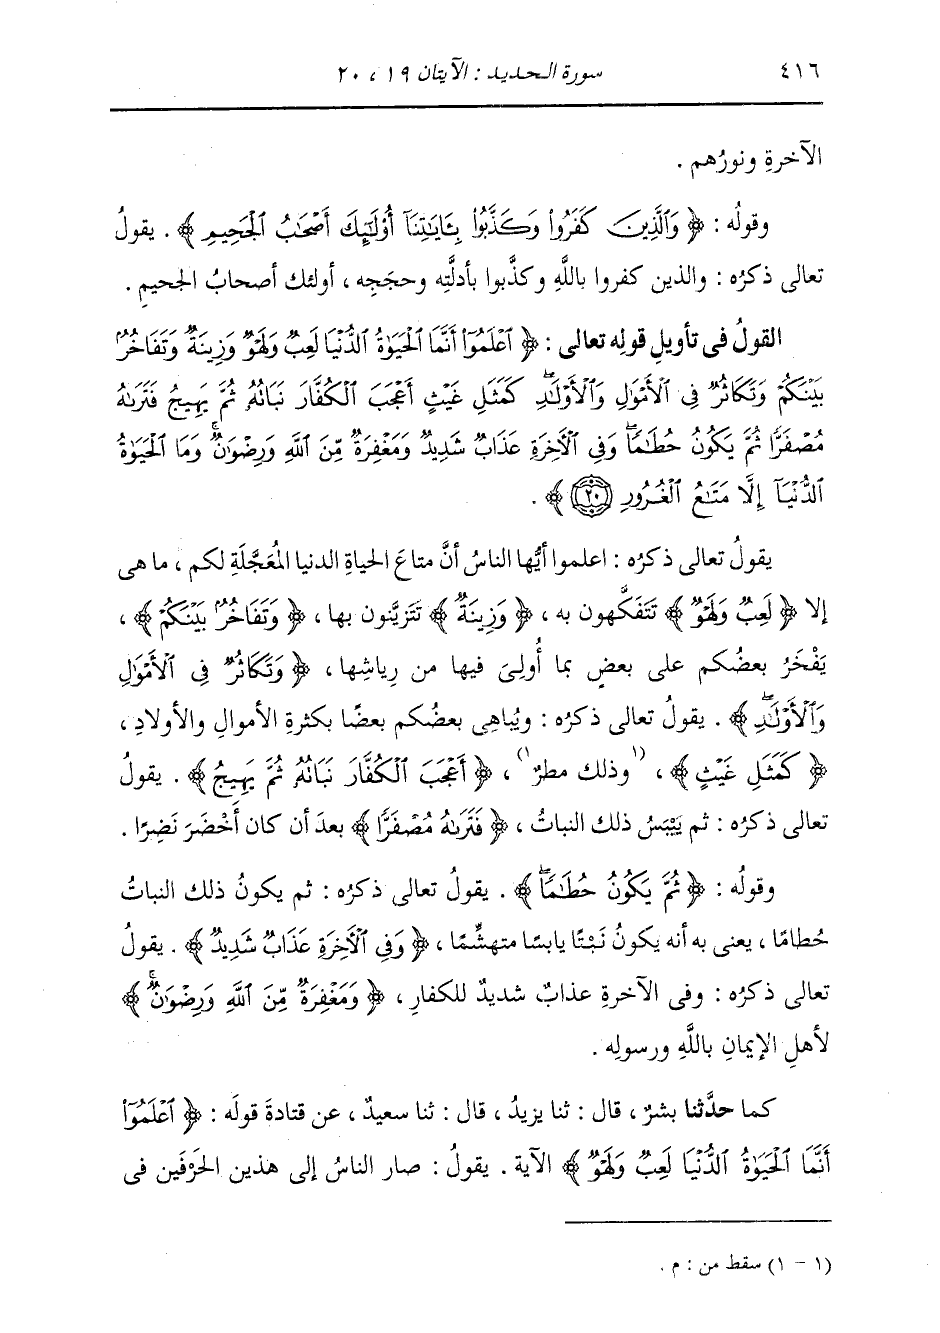 ٤١٦ سورة الحديد : الآيتان ١٩ ، ٢٠
الآخرةِ ونورُهم .
وقولُه : ﴿ وَالَّذِينَ كَفَرُوا وَكَذَّبُوا بِآيَاتِنَا أُوْلَئِكَ أَصْحَابُ الْجَحِيمِ ﴾ . يقولُ
تعالى ذكرُه : والذين كفروا باللَّهِ وكذَّبوا بأدلَّتِه وحججِه ، أولئك أصحابُ الجحيمِ .
القولُ فى تأويلِ قولِه تعالى : ﴿ اعْلَمُوا أَنَّمَا الْحَيَاةُ الدُّنْيَا لَعِبٌ وَلَهْوٌ وَزِينَةٌ وَتَفَاخُرٌ
بَيْنَكُمْ وَتَكَاثُرٌ فِي الْأَمْوَالِ وَالْأَوْلَادِ كَمَثَلِ غَيْثٍ أَعْجَبَ الْكُفَّارَ نَبَاتُهُ ثُمَّ يَهِيجُ فَتَرَاهُ
مُصْفَرًّا ثُمَّ يَكُونُ حُطَامًا وَفِي الْآخِرَةِ عَذَابٌ شَدِيدٌ وَمَغْفِرَةٌ مِّنَ اللَّهِ وَرِضْوَانٌ وَمَا الْحَيَاةُ
الدُّنْيَا إِلَّا مَتَاعُ الْغُرُورِ ٢٠ ﴾ .
يقولُ تعالى ذكرُه : اعلموا أيُّها الناسُ أنَّ متاعَ الحياةِ الدنيا المُعَجَّلَةِ لكم ، ما هى
إلا ﴿ لَعِبٌ وَلَهْوٌ ﴾ تَتَفَكَّهون به ، ﴿ وَزِينَةٌ ﴾ تَتزيَّنون بها ، ﴿ وَتَفَاخُرٌ بَيْنَكُمْ ﴾ ،
يَفْخَرُ بعضُكم على بعضٍ بما أُولِىَ فيها من رِياشِها ، ﴿ وَتَكَاثُرٌ فِي الْأَمْوَالِ
وَالْأَوْلَادِ ﴾ . يقولُ تعالى ذكرُه : ويُباهِى بعضُكم بعضًا بكثرةِ الأموالِ والأولادِ ،
﴿ كَمَثَلِ غَيْثٍ ﴾ ، (١ وذلك مطرٌ ١) ، ﴿ أَعْجَبَ الْكُفَّارَ نَبَاتُهُ ثُمَّ يَهِيجُ ﴾ . يقولُ
تعالى ذكرُه : ثم يَيْبَسُ ذلك النباتُ ، ﴿ فَتَرَاهُ مُصْفَرًّا ﴾ بعدَ أن كان أخْضَرَ نَضِرًا .
وقولُه : ﴿ ثُمَّ يَكُونُ حُطَامًا ﴾ . يقولُ تعالى ذكرُه : ثم يكونُ ذلك النباتُ
حُطامًا ، يعنى به أنه يكونُ نَبْتًا يابسًا متهشِّمًا ، ﴿ وَفِي الْآخِرَةِ عَذَابٌ شَدِيدٌ ﴾ . يقولُ
تعالى ذكرُه : وفى الآخرةِ عذابٌ شديدٌ للكفارِ ، ﴿ وَمَغْفِرَةٌ مِّنَ اللَّهِ وَرِضْوَانٌ ﴾
لأهلِ الإيمانِ باللَّهِ ورسولِه .
كما حدَّثنا بشرٌ ، قال : ثنا يزيدُ ، قال : ثنا سعيدٌ ، عن قتادةَ قولَه : ﴿ اعْلَمُوا
أَنَّمَا الْحَيَاةُ الدُّنْيَا لَعِبٌ وَلَهْوٌ ﴾ الآية . يقولُ : صار الناسُ إلى هذين الحَرْفَين فى
(١ - ١) سقط من : م .